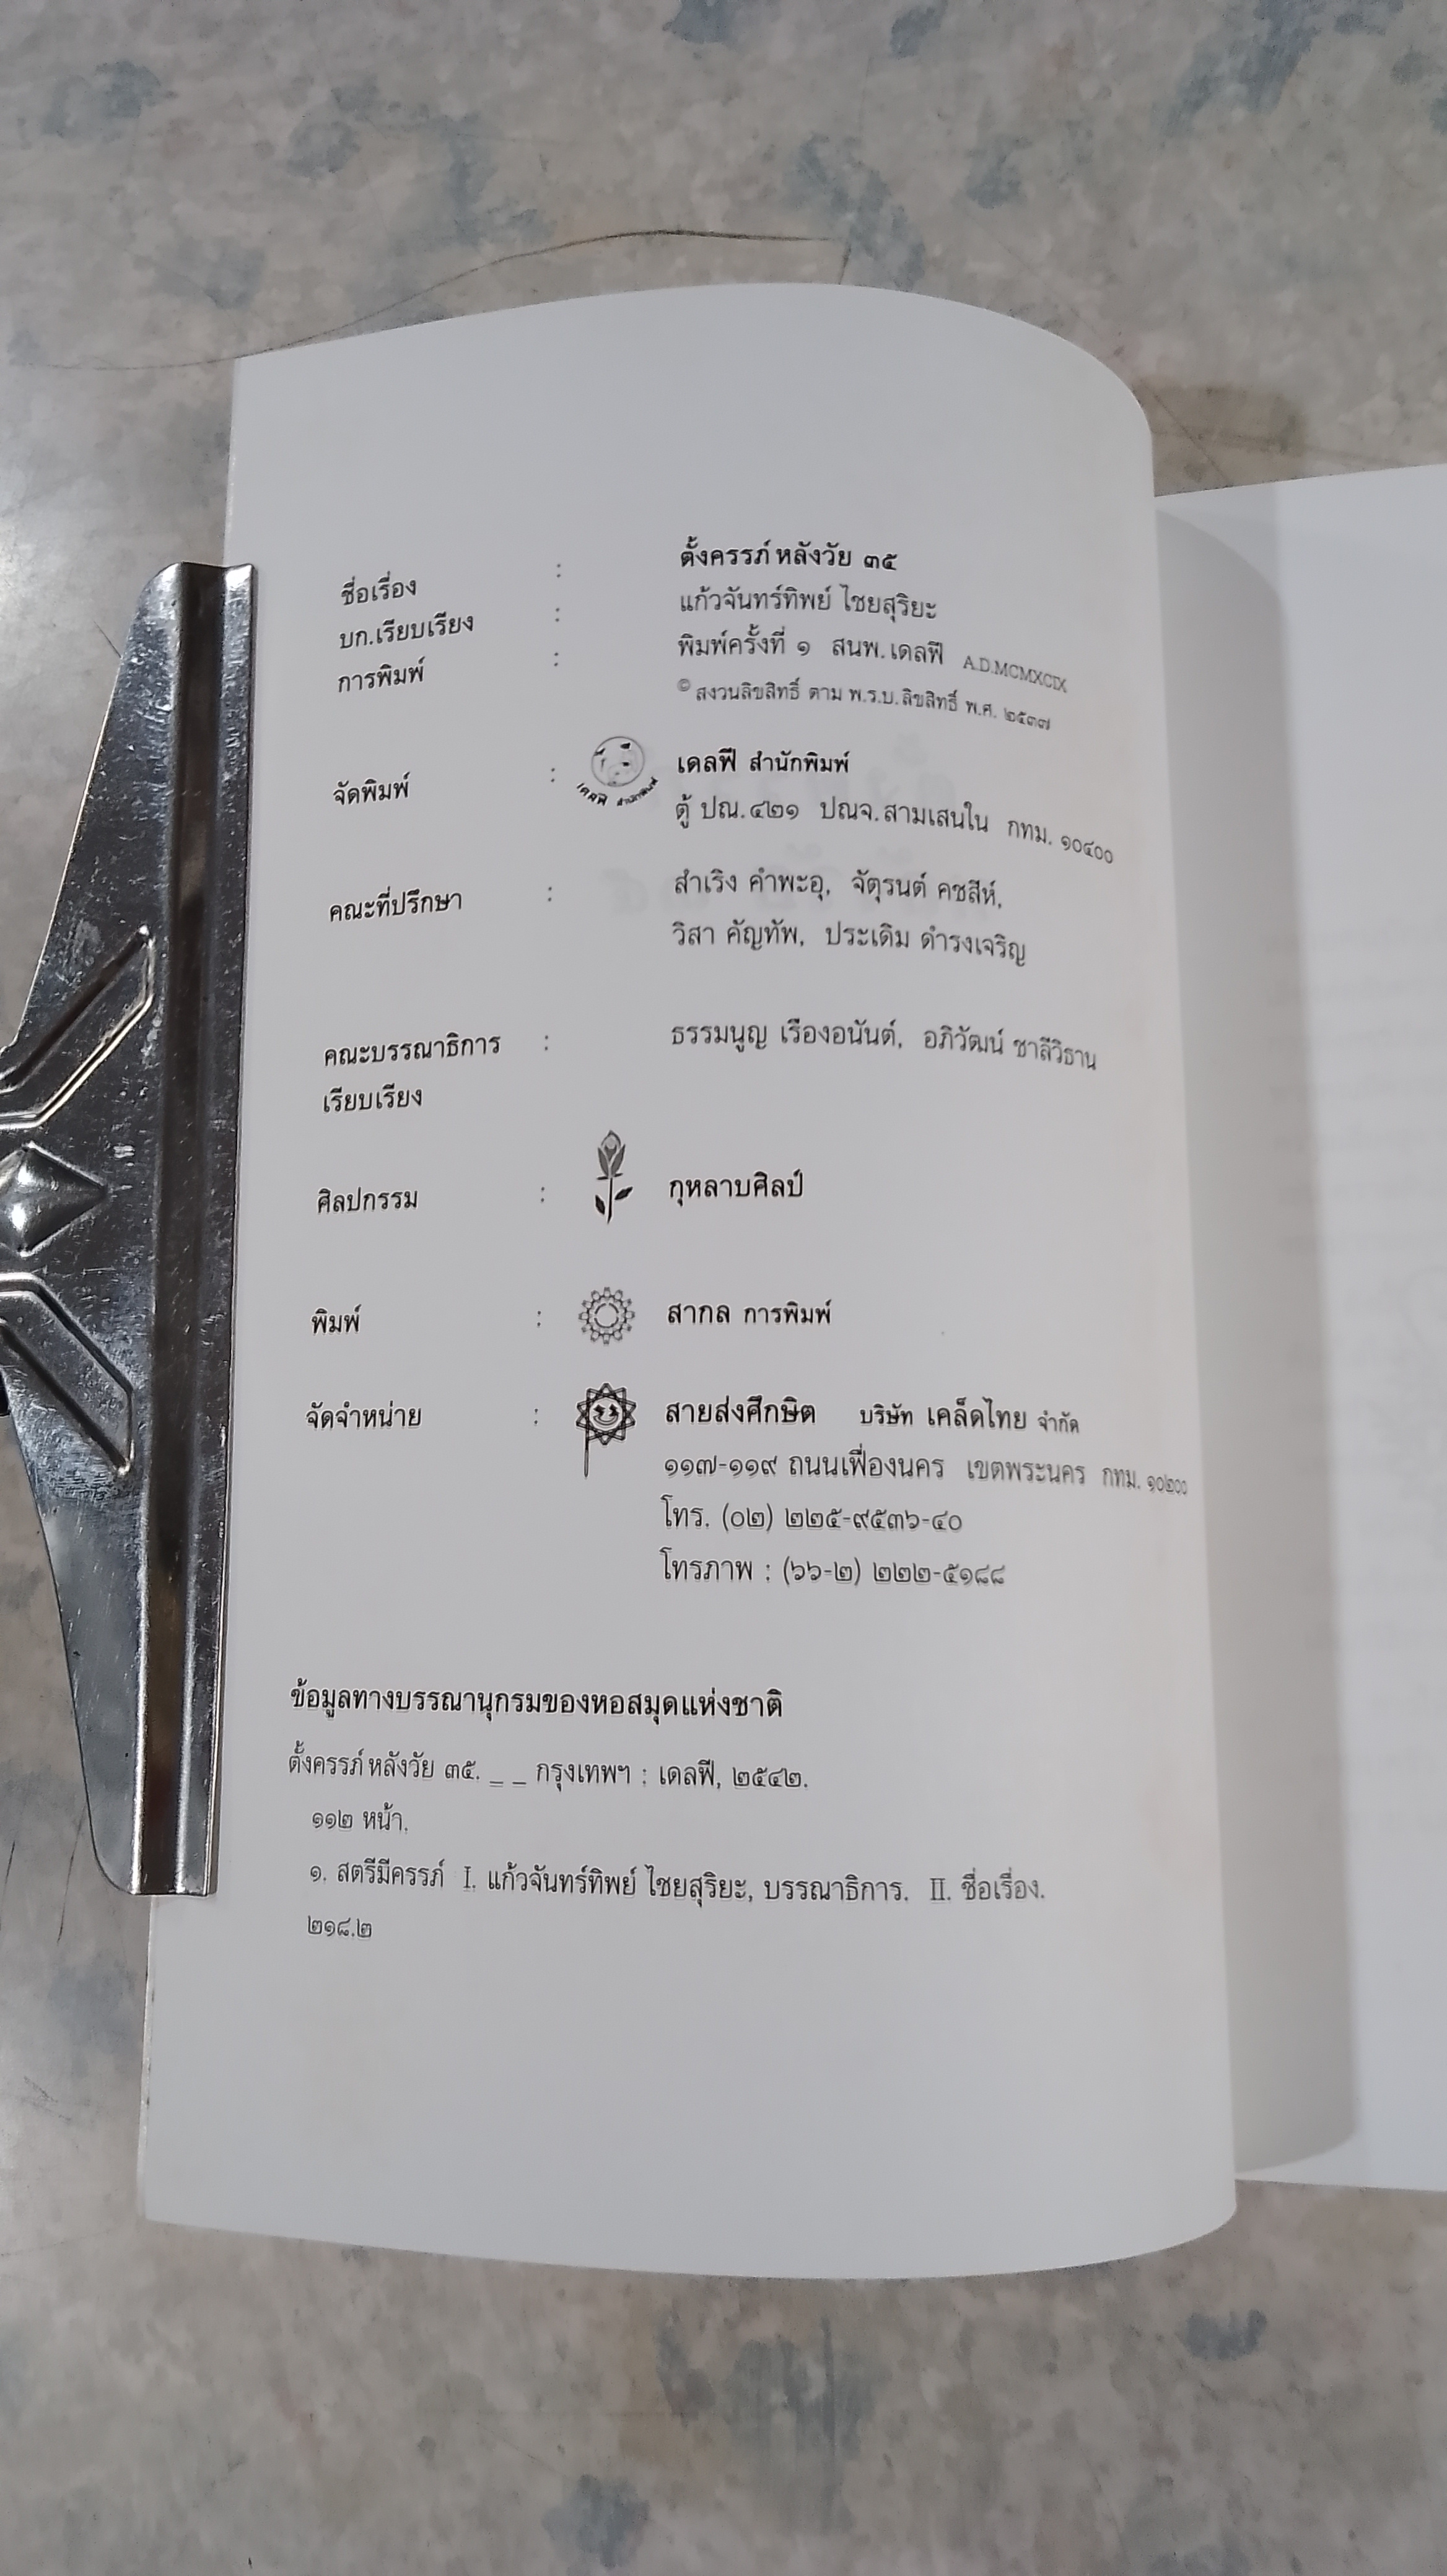 ชื่อเรื่อง : ตั้งครรภ์ หลังวัย ๓๕
บก.เรียบเรียง : แก้วจันทร์ทิพย์ ไชยสุริยะ
การพิมพ์ : พิมพ์ครั้งที่ ๑ สนพ.เดลฟี A.D.MCMXCIX
© สงวนลิขสิทธิ์ ตาม พ.ร.บ.ลิขสิทธิ์ พ.ศ. ๒๕๓๗
จัดพิมพ์ : เดลฟี สำนักพิมพ์ เดลฟี สำนักพิมพ์
ตู้ ปณ.๔๒๑ ปณจ.สามเสนใน กทม. ๑๐๔๐๐
คณะที่ปรึกษา : สำเริง คำพะอุ, จัตุรนต์ คชสีห์,
วิสา คัญทัพ, ประเดิม ดำรงเจริญ
คณะบรรณาธิการ : ธรรมนูญ เรืองอนันต์, อภิวัฒน์ ชาลีวิธาน
เรียบเรียง
ศิลปกรรม : กุหลาบศิลป์
พิมพ์ : สากล การพิมพ์
จัดจำหน่าย : สายส่งศึกษิต บริษัท เคล็ดไทย จำกัด
๑๑๗-๑๑๙ ถนนเฟื่องนคร เขตพระนคร กทม. ๑๐๒๐๐
โทร. (๐๒) ๒๒๕-๙๕๓๖-๔๐
โทรภาพ : (๖๖-๒) ๒๒๒-๕๑๘๘
ข้อมูลทางบรรณานุกรมของหอสมุดแห่งชาติ
ตั้งครรภ์ หลังวัย ๓๕. _ _ กรุงเทพฯ : เดลฟี, ๒๕๔๒.
๑๑๒ หน้า.
๑. สตรีมีครรภ์ I. แก้วจันทร์ทิพย์ ไชยสุริยะ, บรรณาธิการ. II. ชื่อเรื่อง.
๒๑๘.๒